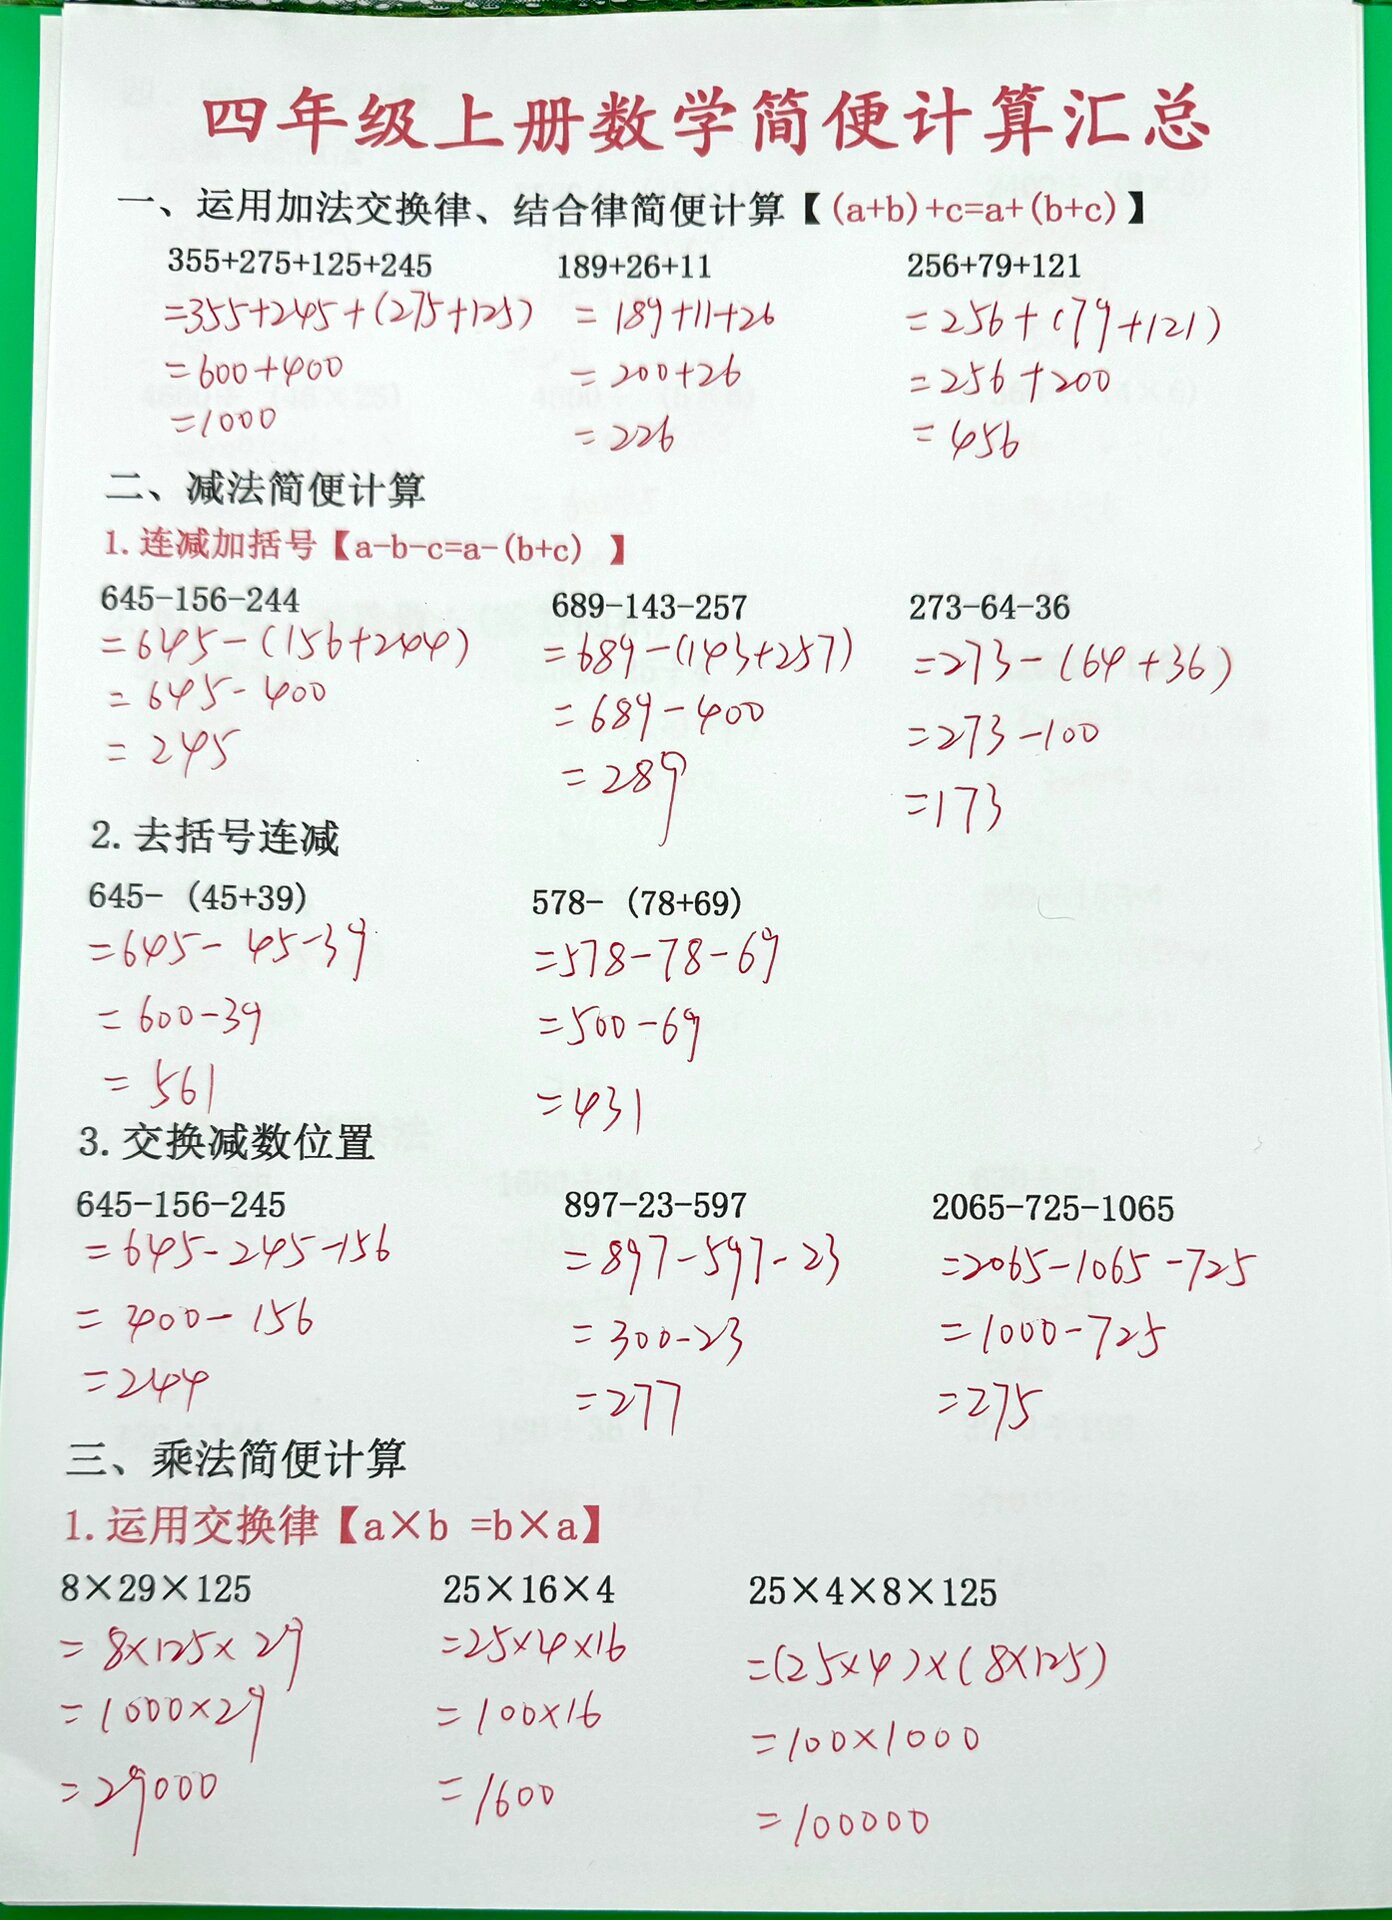 四年级上册数学简便计算汇总
一、运用加法交换律、结合律简便计算【(a+b)+c=a+(b+c)】
355+275+125+245 189+26+11 256+79+121
=355+245+(275+125) =189+11+26 =256+(79+121)
=600+400 =200+26 =256+200
=1000 =226 =456
二、减法简便计算
1.连减加括号【a-b-c=a-(b+c) 】
645-156-244 689-143-257 273-64-36
=645-(156+244) =689-(143+257) =273-(64+36)
=645-400 =689-400 =273-100
=245 =289 =173
2.去括号连减
645- (45+39) 578- (78+69)
=645-45-39 =578-78-69
=600-39 =500-69
=561 =431
3.交换减数位置
645-156-245 897-23-597 2065-725-1065
=645-245-156 =897-597-23 =2065-1065-725
=400-156 =300-23 =1000-725
=244 =277 =275
三、乘法简便计算
1.运用交换律【a×b =b×a】
8×29×125 25×16×4 25×4×8×125
=8×125×29 =25×4×16 =(25×4)×(8×125)
=1000×29 =100×16 =100×1000
=29000 =1600 =100000